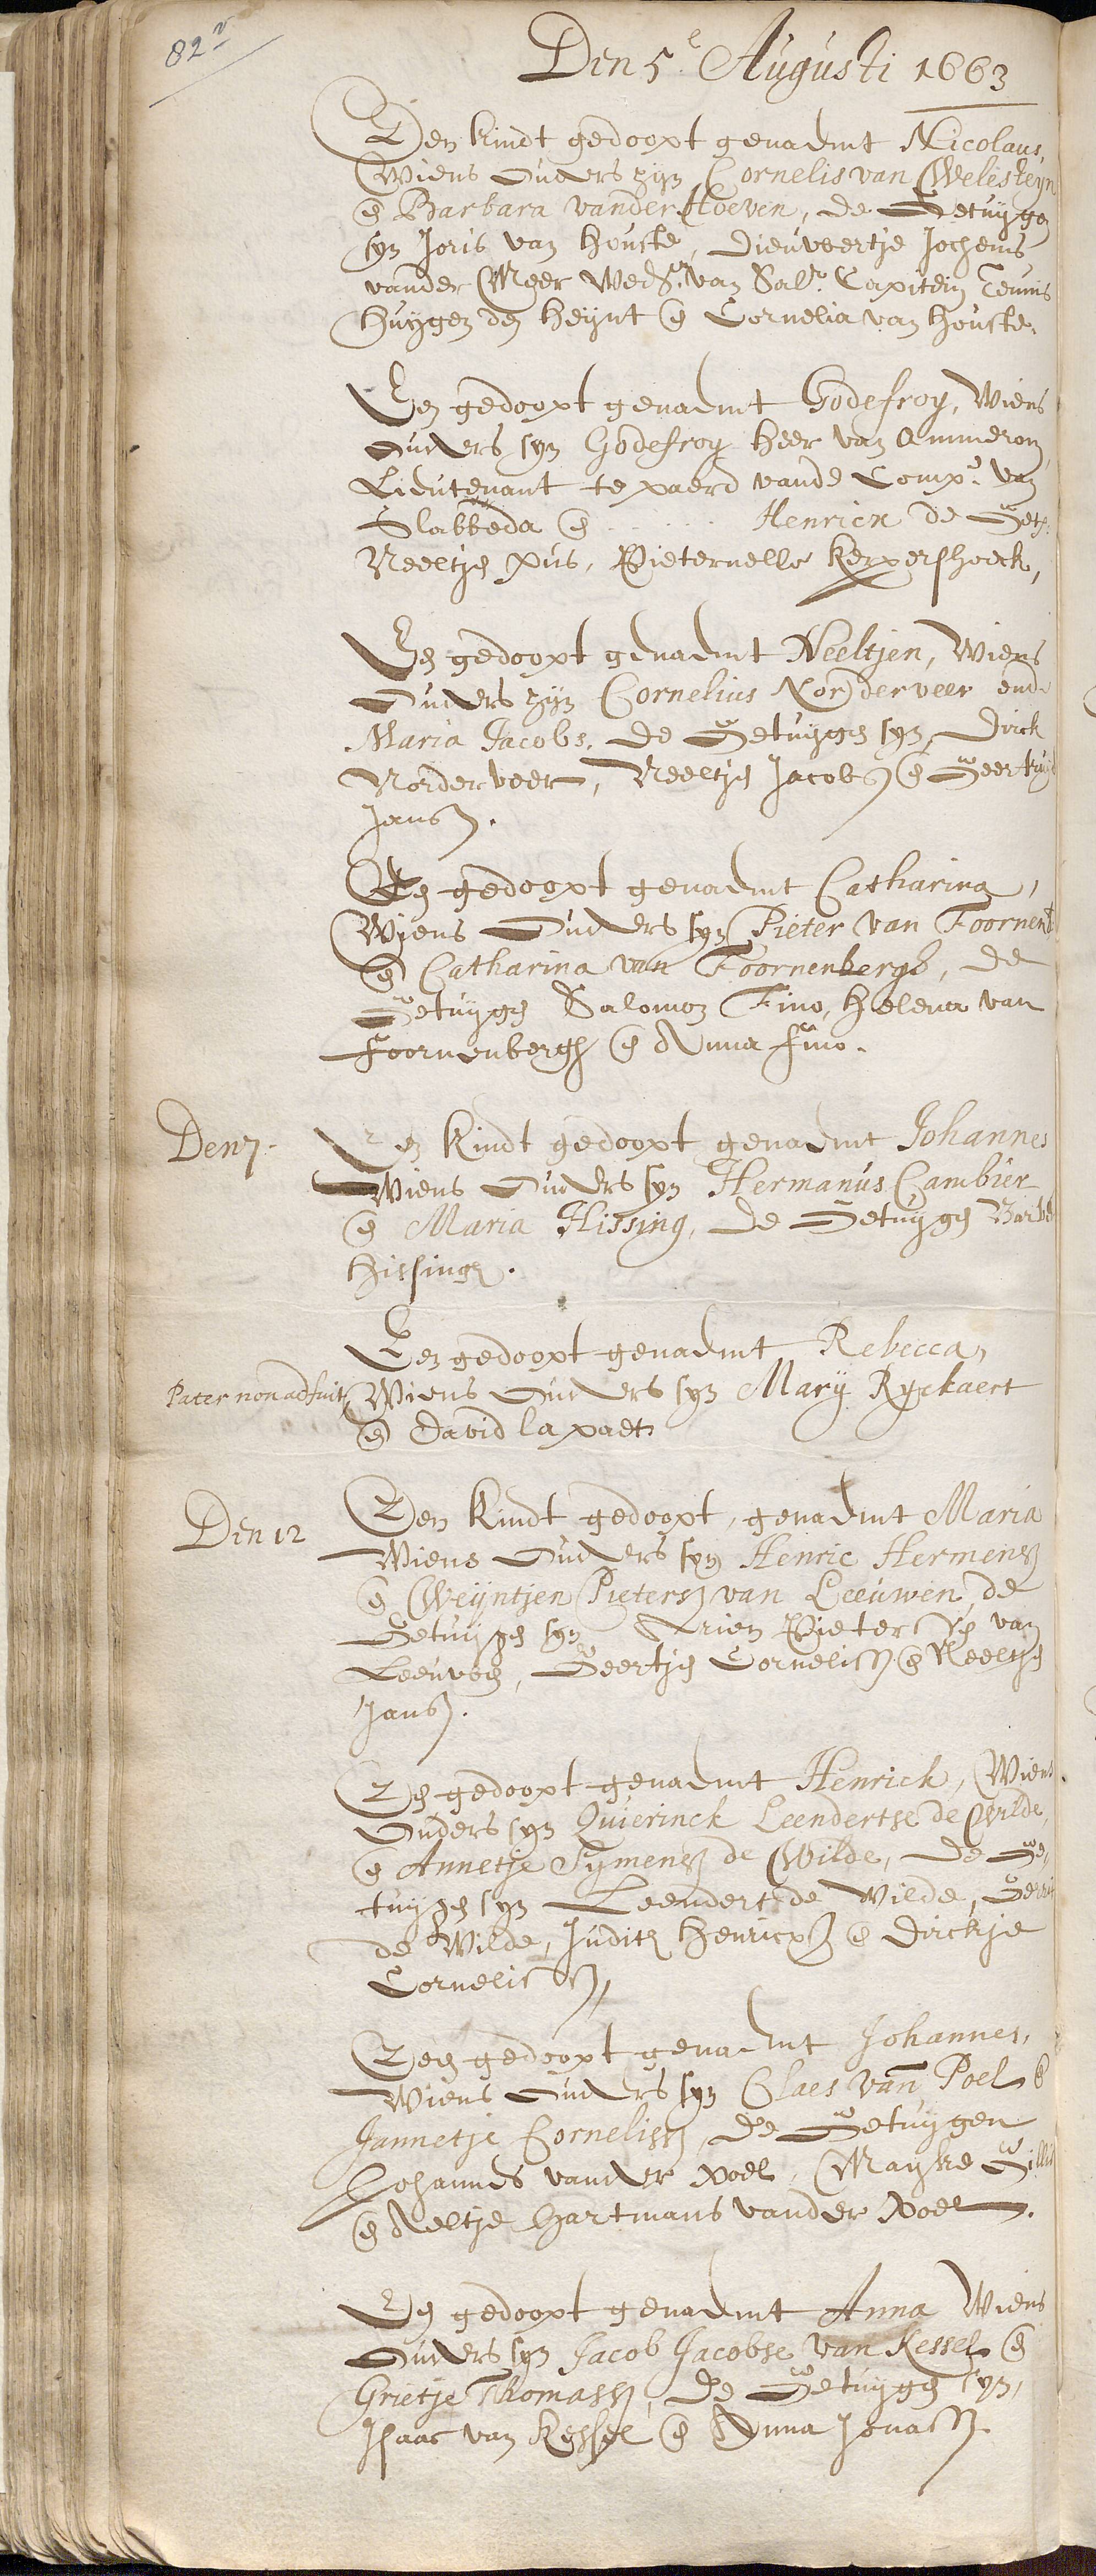 82v
Den 5e Augusti 1663
Een kindt gedoopt genaemt Nicolaus,
Wiens ouders zijn Cornelis van Welesteyn
en Barbara vander Hoeven, de Getuygen
syn Joris van Houcke, Dieuwertje Jochems
vander Meer Wede. van Salr. Capitein Teunis
Huygen de Heynt en Cornelia van Houcke.
Een gedoopt genaemt Godefroy, Wiens
ouders syn Godefroy Heer van
Lieutenant te paerd vande Compe. van
Slabbeda en ...... Henricx de Get:
Neeltje Pus, Pieternelle Keppershoeck,
Een gedoopt genaemt Neeltjen, Wiens
Ouders zijn Cornelius Norderveer ende
Maria Jacobs, de Getuygen syn, Dirck
Norderveer, Neeltje Jacobs en Geertruyd
Jans.
Een gedoopt genaemt Catharina,
Wiens Ouders syn Pieter van Foornenb
en Catharina van Foornenbergh, de
Getuygen Salomon Fino, Helena van
Foornenbergh en Anna Fino.
Den 7.
Een Kindt gedoopt genaemt Johannes
Wiens Ouders syn Hermanus Cambier
en Maria Hissing, de Getuygen Barbe
Hissingh.
Een gedoopt genaemt Rebecca,
Pater non adfuit
Wiens ouders syn Marij Ryckaert
en David la
Den 12
Een Kindt gedoopt, genaemt Maria
Wiens Ouders syn Henric Hermens
en Weyntjen Pieters van Leeuwen, de
Getuygen syn Arien Pieterse van
Leeuwen, Geertje Cornelis en Neeltje
Jans.
Een gedoopt genaemt Henrick, Wiens
Ouders syn Quierinck Leendertse de Wilde,
en Annetje Symens de Wilde, de Ge-
tuygen syn Leendert de Wilde, Gerrit
de Wilde, Judith Henricx en Dirckje
Cornelis,
Een gedoopt genaemt Johannes,
Wiens Ouders syn Claes van Poel en
Jannetje Corneliss, de Getuygen
Johannes vander Poel, Mayke Gillis
en Aeltje Hartmans vander Poel.
Een gedoopt genaemt Anna Wiens
Ouders syn Jacob Jacobse van Kessel en
Grietje Thomass, de Getuygen syn,
Isaac van Kessel en Anna Jonas.